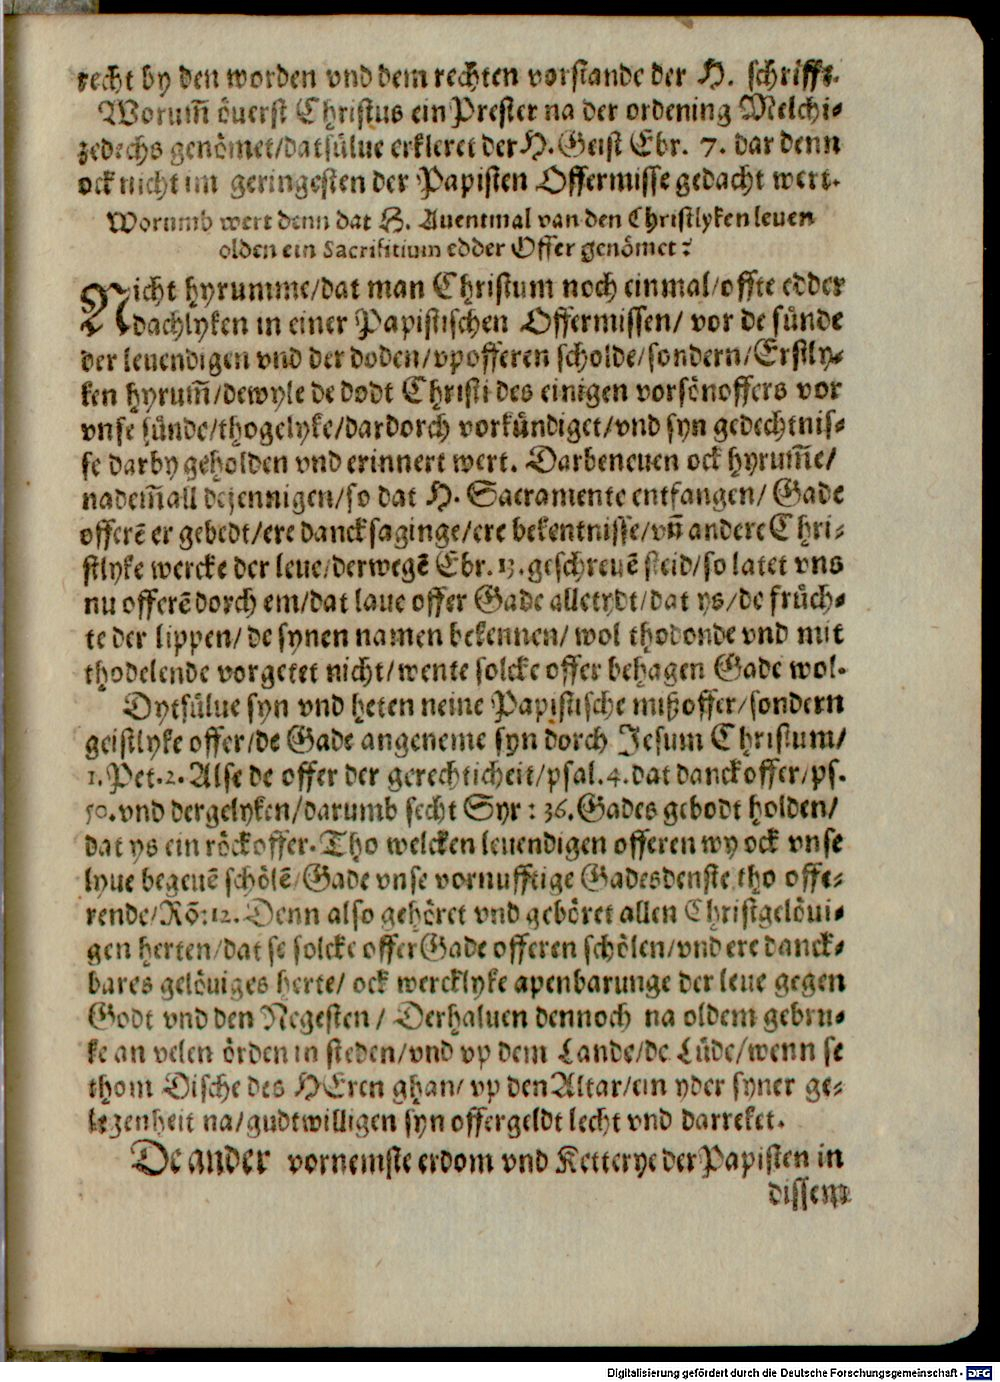 recht by den worden vnd dem rechten vorstande der H. schrifft.
Worum̃ öuerst Christus ein Prester na der ordening Melchi-
zedechs genömet/datsülue erkleret der H. Geist Ebr. 7. dar denn
ock nicht im geringesten der Papisten Offermisse gedacht wert.
Worumb wert denn dat H. Auentmal van den Christlyken leuen
olden ein Sacrifitium edder Offer genömet?
Nicht hyrumme/dat man Christum noch einmal/offte edder
dachlyken in einer Papistischen Offermissen/ vor de sünde
der leuendigen vnd der doden/vpofferen scholde/sondern/Erstly-
ken hyrum̃/dewyle de dodt Christi des einigen vorsönoffers vor
vnse sünde/thogelyke/dardorch vorkündiget/vnd syn gedechtnis-
se darby geholden vnd erinnert wert. Darbeneuen ock hyrum̃e/
nadem̃all dejennigen/so dat H. Sacramente entfangen/ Gade
offerē er gebedt/ere dancksaginge/ere bekentnisse/vñ andere Chri-
stlyke wercke der leue/derwegē Ebr. 13. geschreuē steid/so latet vns
nu offerē dorch em/dat laue offer Gade alletydt/dat ys/de früch-
te der lippen/ de synen namen bekennen/ wol thodonde vnd mit
thodelende vorgetet nicht/wente solcke offer behagen Gade wol.
Dytsülue syn vnd heten neine Papistische mißoffer/sondern
geistlyke offer/de Gade angeneme syn dorch Jesum Christum/
1. Pet. 2. Alse de offer der gerechticheit/psal. 4. dat danckoffer/ps.
50. vnd dergelyken/darumb secht Syr: 36. Gades gebodt holden/
dat ys ein röckoffer. Tho welcken leuendigen offeren wy ock vnse
lyue begeuē schölē/Gade vnse vornufftige Gadesdenste tho offe-
rende/Rō: 12. Denn also gehöret vnd geböret allen Christgelöui-
gen herten/dat se solcke offer Gade offeren schölen/vnd ere danck-
bares gelöuiges herte/ ock wercklyke apenbarunge der leue gegen
Godt vnd den Negesten/ Derhaluen dennoch na oldem gebru-
ke an velen örden in steden/vnd vp dem Lande/de Lüde/wenn se
thom Dische des HEren ghan/ vp den Altar/ein yder syner ge-
legenheit na/gudtwilligen syn offergeldt lecht vnd darreket.
De ander vornemste erdom vnd Ketterye der Papisten in
dissem
Digitalisierung gefördert durch die Deutsche Forschungsgemeinschaft - DFG